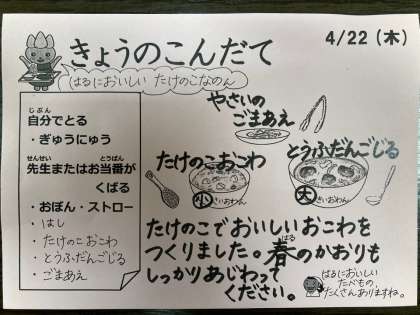 きょうのこんだて
4/22(木)
はるにおいしい たけのこなのん
じぶん
自分でとる
・ぎゅうにゅう
せんせい とうばん
先生またはお当番が
くばる
・おぼん・ストロー
・はし
・たけのこおこわ
・とうふだんごじる
・ごまあえ
やさいの
ごまあえ
たけのこおこわ
小さいおわん
とうふだんごじる
大きいおわん
たけのこでおいしいおこわを
つくりました。春のかおりも
はる
しっかりあじわって
ください。
はるにおいしい
たべもの、
たくさんありますね。